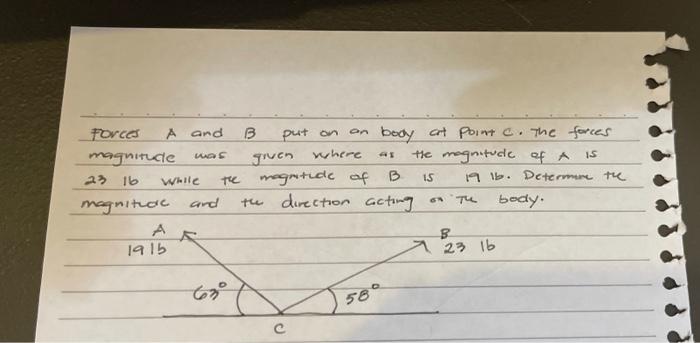 Forces A and B put on an body at Point C. The forces
magnitude was given where as the magnitude of A is
23 lb while the magnitude of B is 19 lb. Determine the
magnitude and the direction acting on The body.
A B
19 lb 23 lb
63° 58°
C